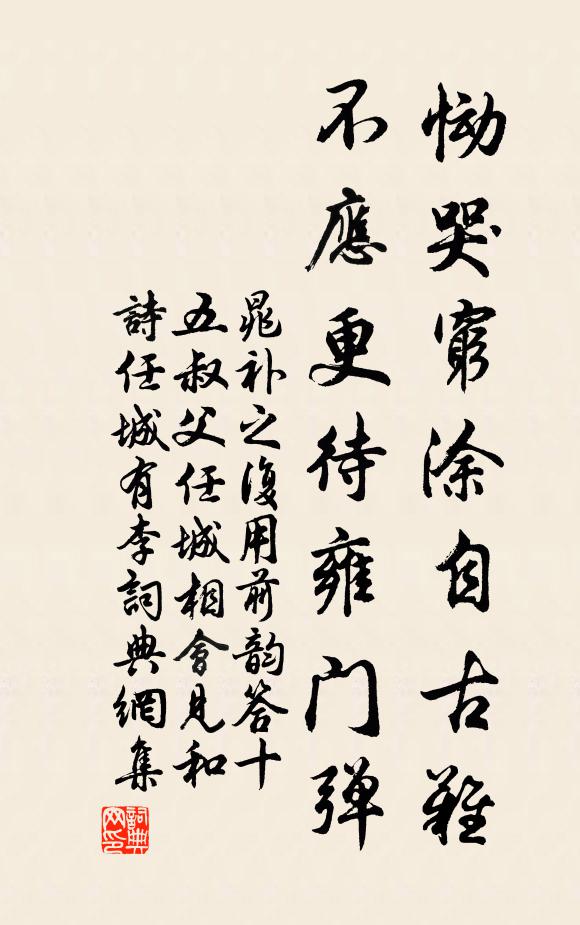 慟哭窮涂自古難
不應更待雍門彈
晁补之復用前韵答十
五叔父任城相會見和
詩任城有李詞典網集
詞典
网印